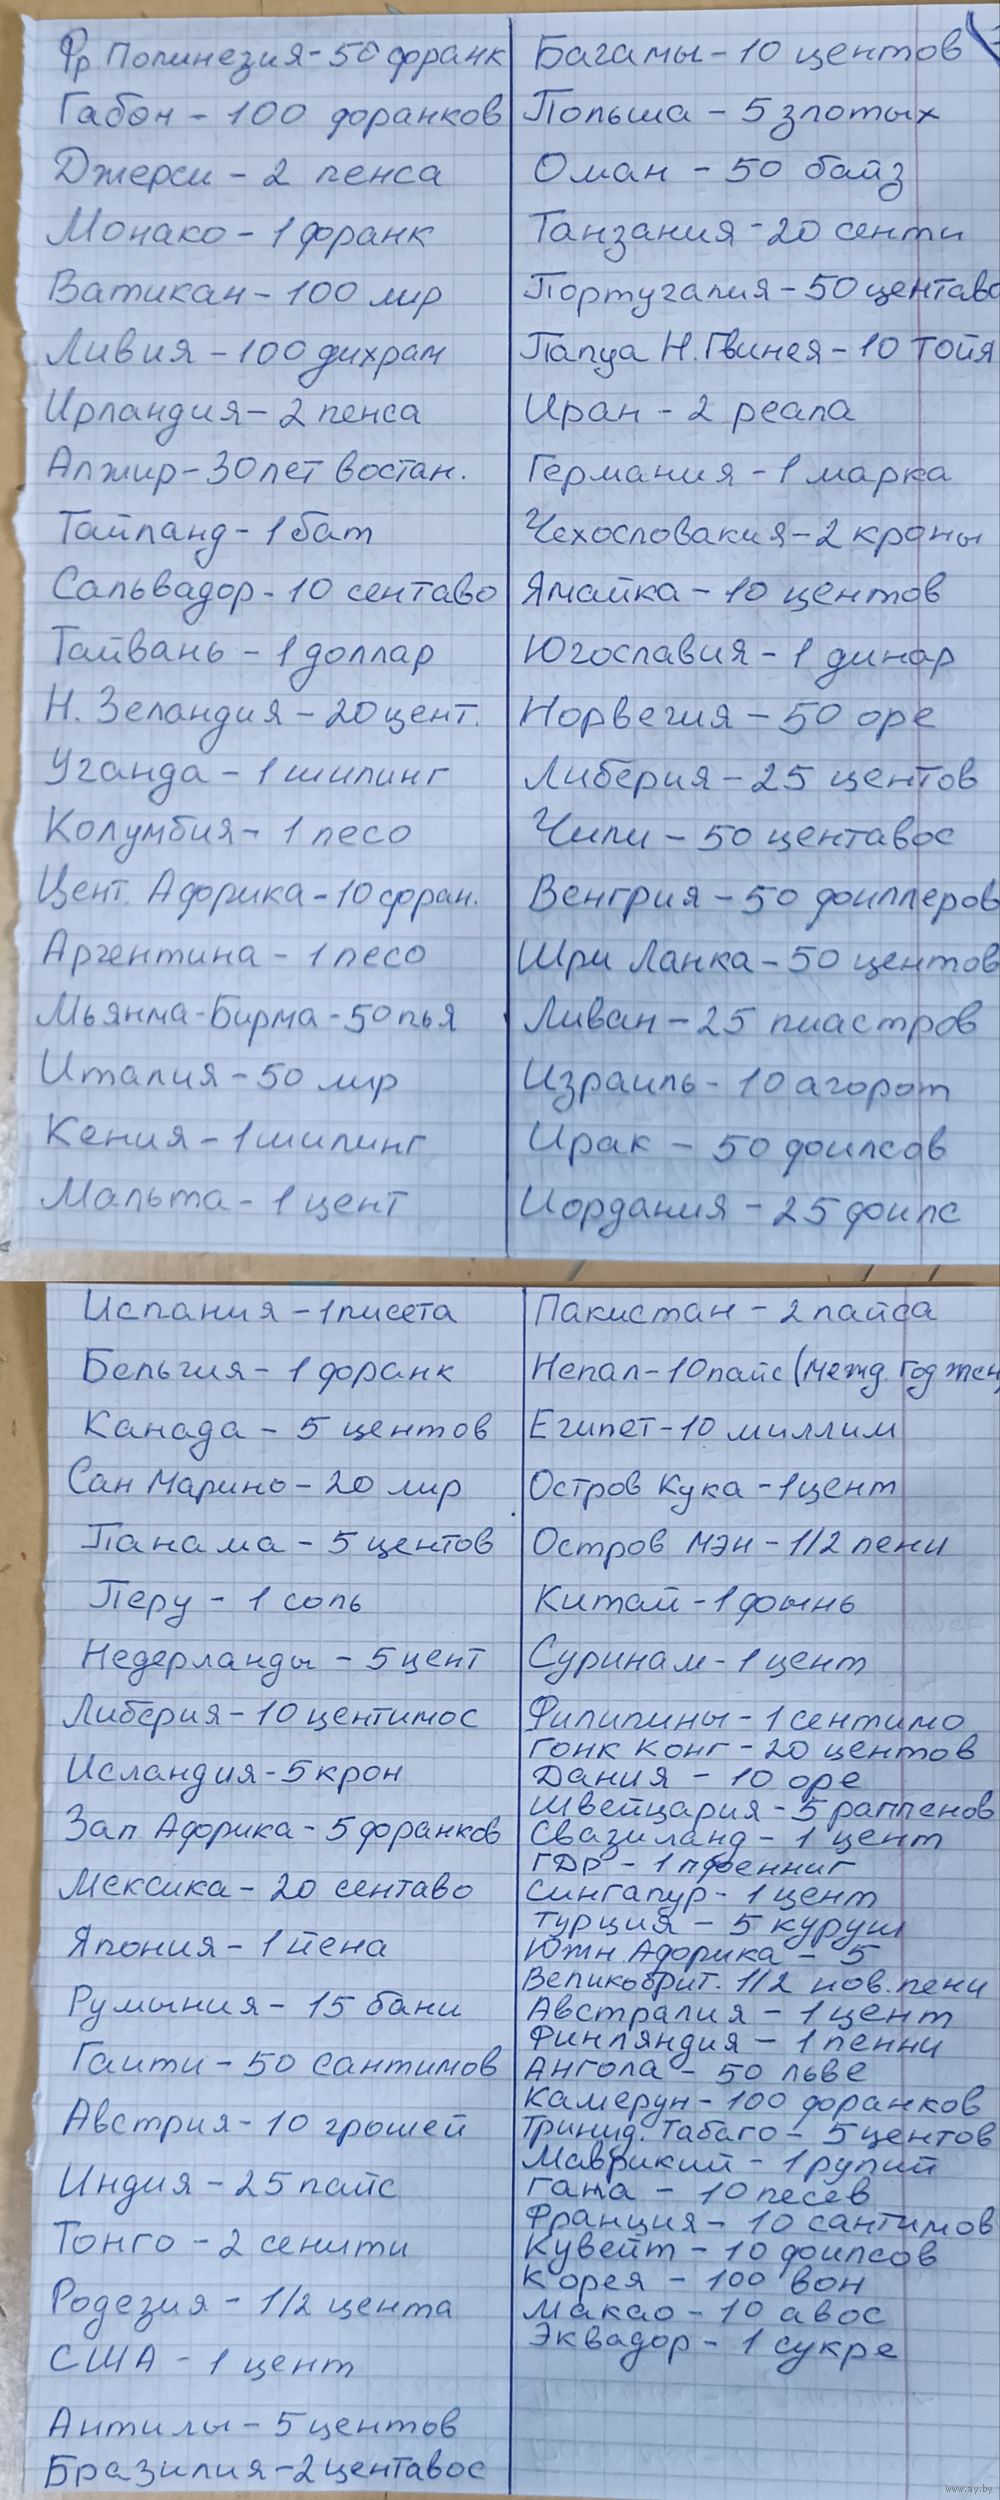 Фр. Полинезия - 50 франк
Габон - 100 франков
Джерси - 2 пенса
Монако - 1 франк
Ватикан - 100 лир
Ливия - 100 дихрам
Ирландия - 2 пенса
Алжир - 30 лет востан.
Тайланд - 1 бат
Сальвадор - 10 сентаво
Тайвань - 1 доллар
Н. Зеландия - 20 цент.
Уганда - 1 шилинг
Колумбия - 1 песо
Цент. Африка - 10 фран.
Аргентина - 1 песо
Мьянма-Бирма - 50 пья
Италия - 50 лир
Кения - 1 шилинг
Мальта - 1 цент
Багамы - 10 центов
Польша - 5 злотых
Оман - 50 байз
Танзания - 20 сенти
Португалия - 50 центаво
Папуа Н. Гвинея - 10 тойя
Иран - 2 реала
Германия - 1 марка
Чехословакия - 2 кроны
Ямайка - 10 центов
Югославия - 1 динар
Норвегия - 50 оре
Либерия - 25 центов
Чили - 50 центавос
Венгрия - 50 филлеров
Шри Ланка - 50 центов
Ливан - 25 пиастров
Израиль - 10 агорот
Ирак - 50 филсов
Иордания - 25 филс
Испания - 1 писета
Бельгия - 1 франк
Канада - 5 центов
Сан Марино - 20 лир
Панама - 5 центов
Перу - 1 соль
Недерланды - 5 цент
Либерия - 10 центимос
Исландия - 5 крон
Зап. Африка - 5 франков
Мексика - 20 сентаво
Япония - 1 йена
Румыния - 15 бани
Гаити - 50 сантимов
Австрия - 10 грошей
Индия - 25 пайс
Тонго - 2 сенити
Родезия - 1/2 цента
США - 1 цент
Антилы - 5 центов
Бразилия - 2 центавос
Пакистан - 2 пайса
Непал - 10 пайс (Межд. Год жен
Египет - 10 миллим
Остров Кука - 1 цент
Остров Мэн - 1/2 пени
Китай - 1 фынь
Суринам - 1 цент
Филипины - 1 сентимо
Гонк Конг - 20 центов
Дания - 10 оре
Швейцария - 5 раппенов
Свазиланд - 1 цент
ГДР - 1 пфенниг
Сингапур - 1 цент
Турция - 5 куруш
Южн Африка - 5
Великобрит. 1/2 нов. пени
Австралия - 1 цент
Финляндия - 1 пенни
Ангола - 50 льве
Камерун - 100 франков
Тринид. Табаго - 5 центов
Маврикий - 1 рупий
Гана - 10 песев
Франция - 10 сантимов
Кувейт - 10 филсов
Корея - 100 вон
Макао - 10 авос
Эквадор - 1 сукре
www.ay.by